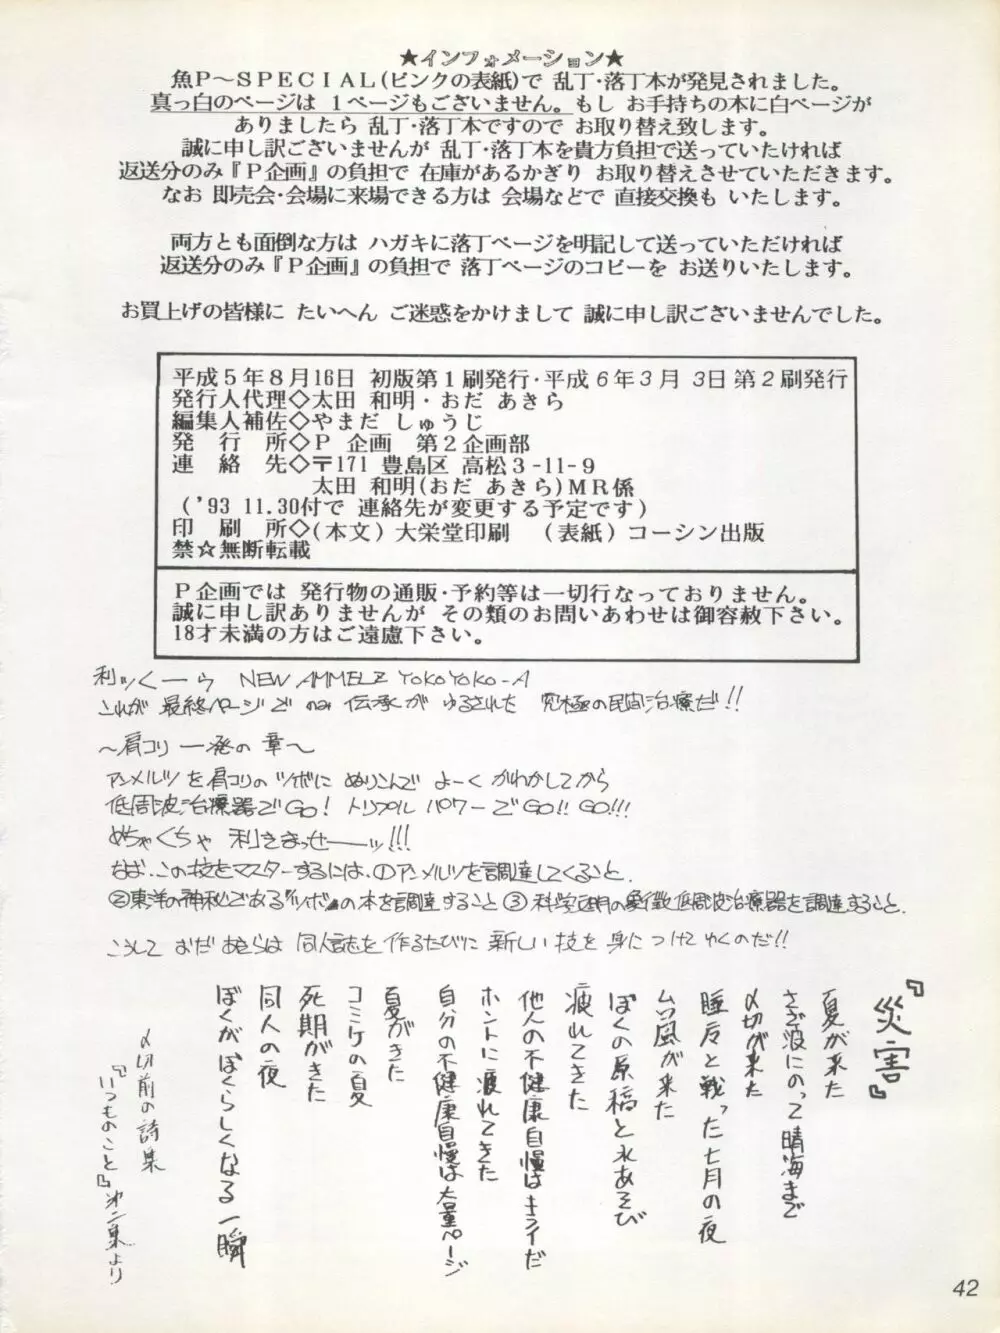 ★インフォメーション★
魚P～SPECIAL(ピンクの表紙)で 乱丁・落丁本が発見されました。
真っ白のページは 1ページもございません。もし お手持ちの本に白ページが
ありましたら 乱丁・落丁本ですので お取り替え致します。
誠に申し訳ございませんが 乱丁・落丁本を貴方負担で送っていたければ
返送分のみ『P企画』の負担で 在庫があるかぎり お取り替えさせていただきます。
なお 即売会・会場に来場できる方は 会場などで 直接交換も いたします。
両方とも面倒な方は ハガキに落丁ページを明記して送っていただければ
返送分のみ『P企画』の負担で 落丁ページのコピーを お送りいたします。
お買上げの皆様に たいへん ご迷惑をかけまして 誠に申し訳ございませんでした。
平成5年8月16日 初版第1刷発行・平成6年3月 3日第2刷発行
発行人代理◇太田 和明・おだ あきら
編集人補佐◇やまだ しゅうじ
発 行 所◇P 企画 第2企画部
連 絡 先◇〒171 豊島区 高松3-11-9
太田 和明(おだ あきら)MR係
('93 11.30付で 連絡先が変更する予定です)
印 刷 所◇(本文)大栄堂印刷 (表紙)コーシン出版
禁☆無断転載
P企画では 発行物の通販・予約等は一切行なっておりません。
誠に申し訳ありませんが その類のお問いあわせは御容赦下さい。
18才未満の方はご遠慮下さい。
利ッくーら NEW AMMELZ YOKOYOKO-A
これが 最終ページでのみ 伝承が ゆるされた 究極の民間治療だ!!
～肩コリ 一発の章～
アンメルツを肩コリのツボに ぬりこんで よーく かわかしてから
低周波治療器でGO! トリプル パワーでGO!! GO!!!
めちゃくちゃ 利きまっせーーッ!!!
なお、この技をマスターするには、①アンメルツを調達してくること、
②東洋の神秘である"ツボ"の本を調達すること ③科学文明の象徴低周波治療器を調達すること、
こうして おだ あきらは 同人誌を 作るたびに 新しい 技を 身に つけて ゆくのだ!!
『災害』
夏が来た
さざ波にのって晴海まで
〆切が来た
睡魔と戦った七月の夜
台風が来た
ぼくの原稿と水あそび
疲れてきた
他人の不健康自慢はキライだ
ホントに疲れてきた
自分の不健康自慢は大量ページ
夏がきた
コミケの夏
死期がきた
同人の夜
ぼくがぼくらしくなる一瞬
〆切前の詩集
『いつものこと』第二集より
42